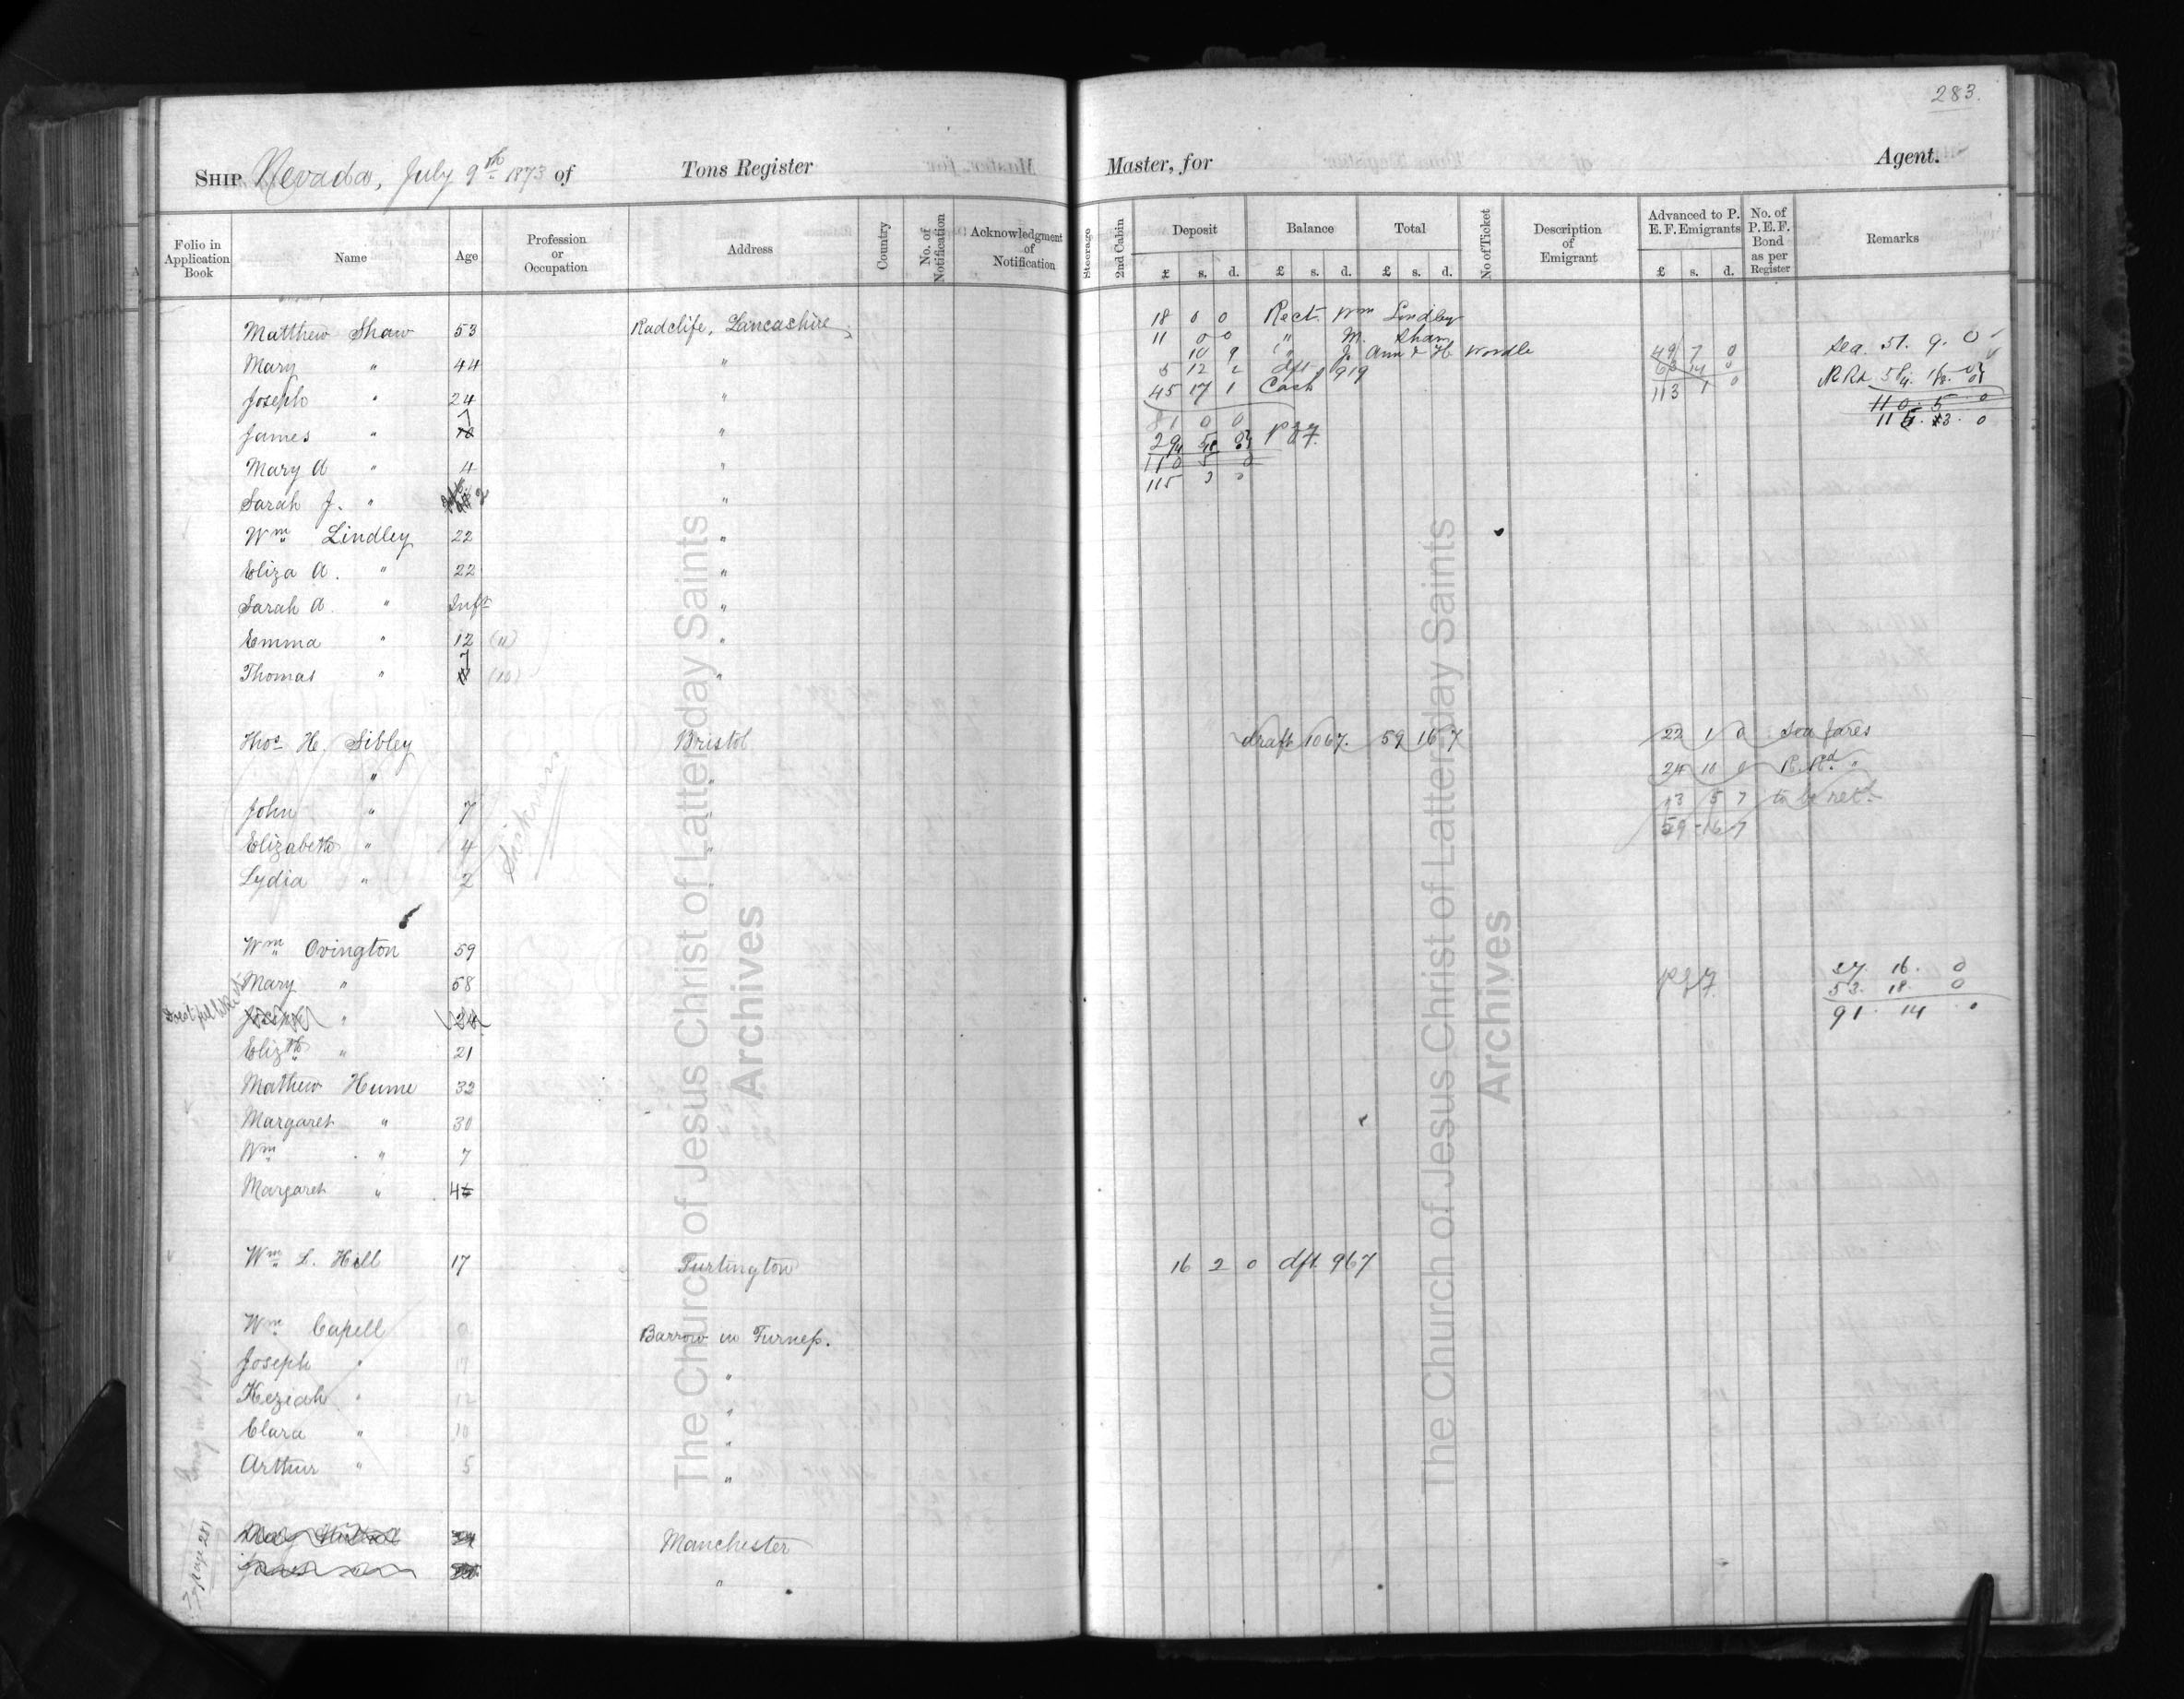 283.
SHIP Nevada, July 9th 1873 of Tons Register Master, for Agent.
Folio in Application Book Name Age Profession or Occupation Address Country No. of Notification Acknowledgment of Notification Steerage 2nd Cabin Deposit Balance Total No of Ticket Description of Emigrant Advanced to P. E. F. Emigrants No. of P. E. F. Bond as per Register Remarks
£ s. d. £ s. d. £ s. d. £ s. d.
18 0 0 Rect. Wm Lindley
Matthew Shaw 53 Radclife, Lancashire 11 0 0 " M. Shaw Sea. 51. 9. 0
10 9 " J. Ann & H. Wordle 49 7 0
Mary " 44 " 5 12 2 dft. 919 63 14 0 R Rd.
45 17 1 Cash 113 1 0
Joseph " 24 " 81 0 0 110. 5. 0
James " 7 " P 87. 115. 0
Mary A " 4 " 110 5 0
Sarah J. " " 115
Wm Lindley 22 "
Eliza A. " 22 "
Sarah A. " Inft "
Emma " 12 (11) "
Thomas " 7 (10) "
Thos H. Sibley Bristol draft 1067. 59 16 7 22 1 0 Sea fares
" " 24 10 0 R. Rd "
John " 7 " 13 5 7 to be retd
Elizabeth " 4 " 59-16-7
Lydia " 2
Wm Ovington 59
Mary " 58 37. 16. 0
53. 18. 0
Joseph " 24 91. 14. 0
Elizth " 21
Mathew Hume 32
Margaret " 30
Wm " 7
Margaret " 4
Wm L. Hill 17 16 2 0 dft. 967
Wm Capell Barrow in Furness.
Joseph " 17 "
Keziah " 12 "
Clara " 10 "
Arthur " 5 "
Manchester
"
page 281
The Church of Jesus Christ of Latter-day Saints
Archives
The Church of Jesus Christ of Latter-day Saints
Archives